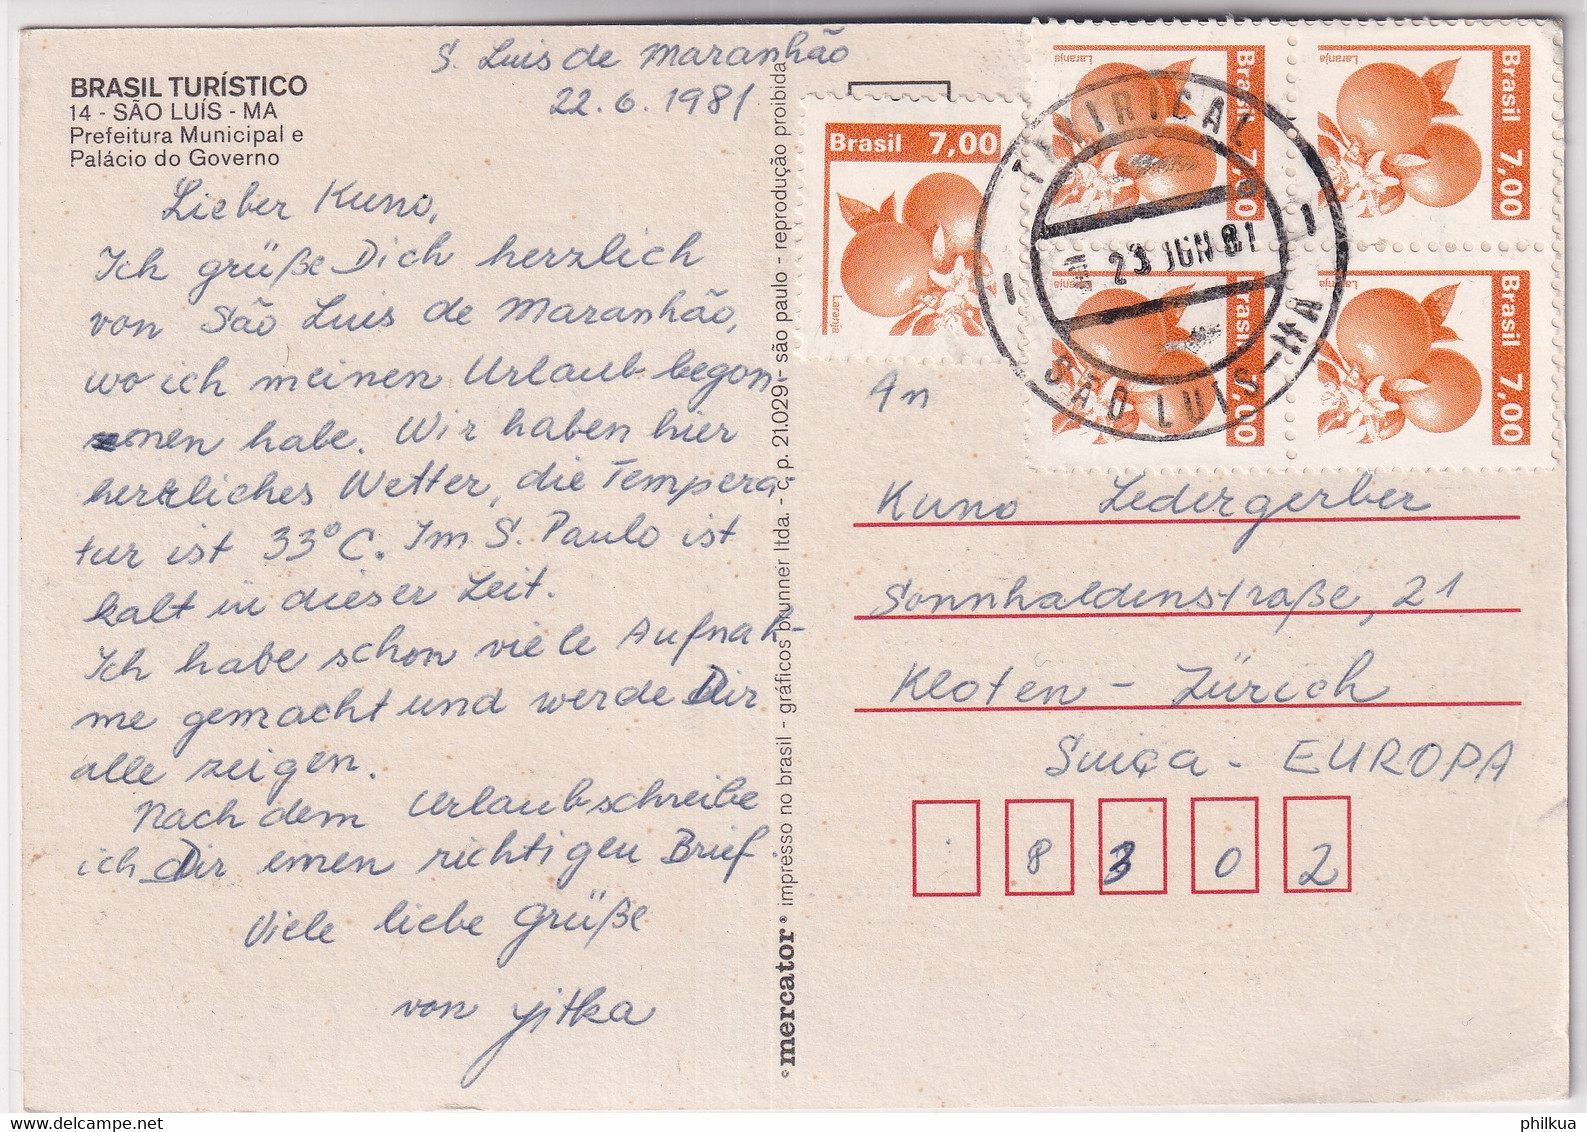 BRASIL TURÍSTICO
14 - SÃO LUÍS - MA
Prefeitura Municipal e
Palácio do Governo
S. Luis de Maranhão
22.6.1981
Lieber Kuno,
Ich grüße Dich herzlich
von São Luis de Maranhão,
wo ich meinen Urlaub begon
nen habe. Wir haben hier
herrliches Wetter, die Tempera
tur ist 33°C. Im S. Paulo ist
kalt in dieser Zeit.
Ich habe schon viele Aufnah-
me gemacht und werde Dir
alle zeigen.
Nach dem Urlaub schreibe
ich Dir einen richtigen Brief
Viele liebe Grüße
von Jitka
©mercator® impresso no brasil - gráficos brunner ltda. - c. p. 21.029 - são paulo - reprodução proibida
Brasil 7,00
Laranja
Brasil 7,00
Laranja
Brasil 7,00
Laranja
Brasil 7,00
Laranja
Brasil 7,00
Laranja
TIRIRICAL
23 JUN 81
SÃO LUIS-MA
An
Kuno Ledergerber
Sonnhaldenstraße, 21
Kloten - Zürich
Suiça - EUROPA
8 3 0 2
© delcampe.net
philkua